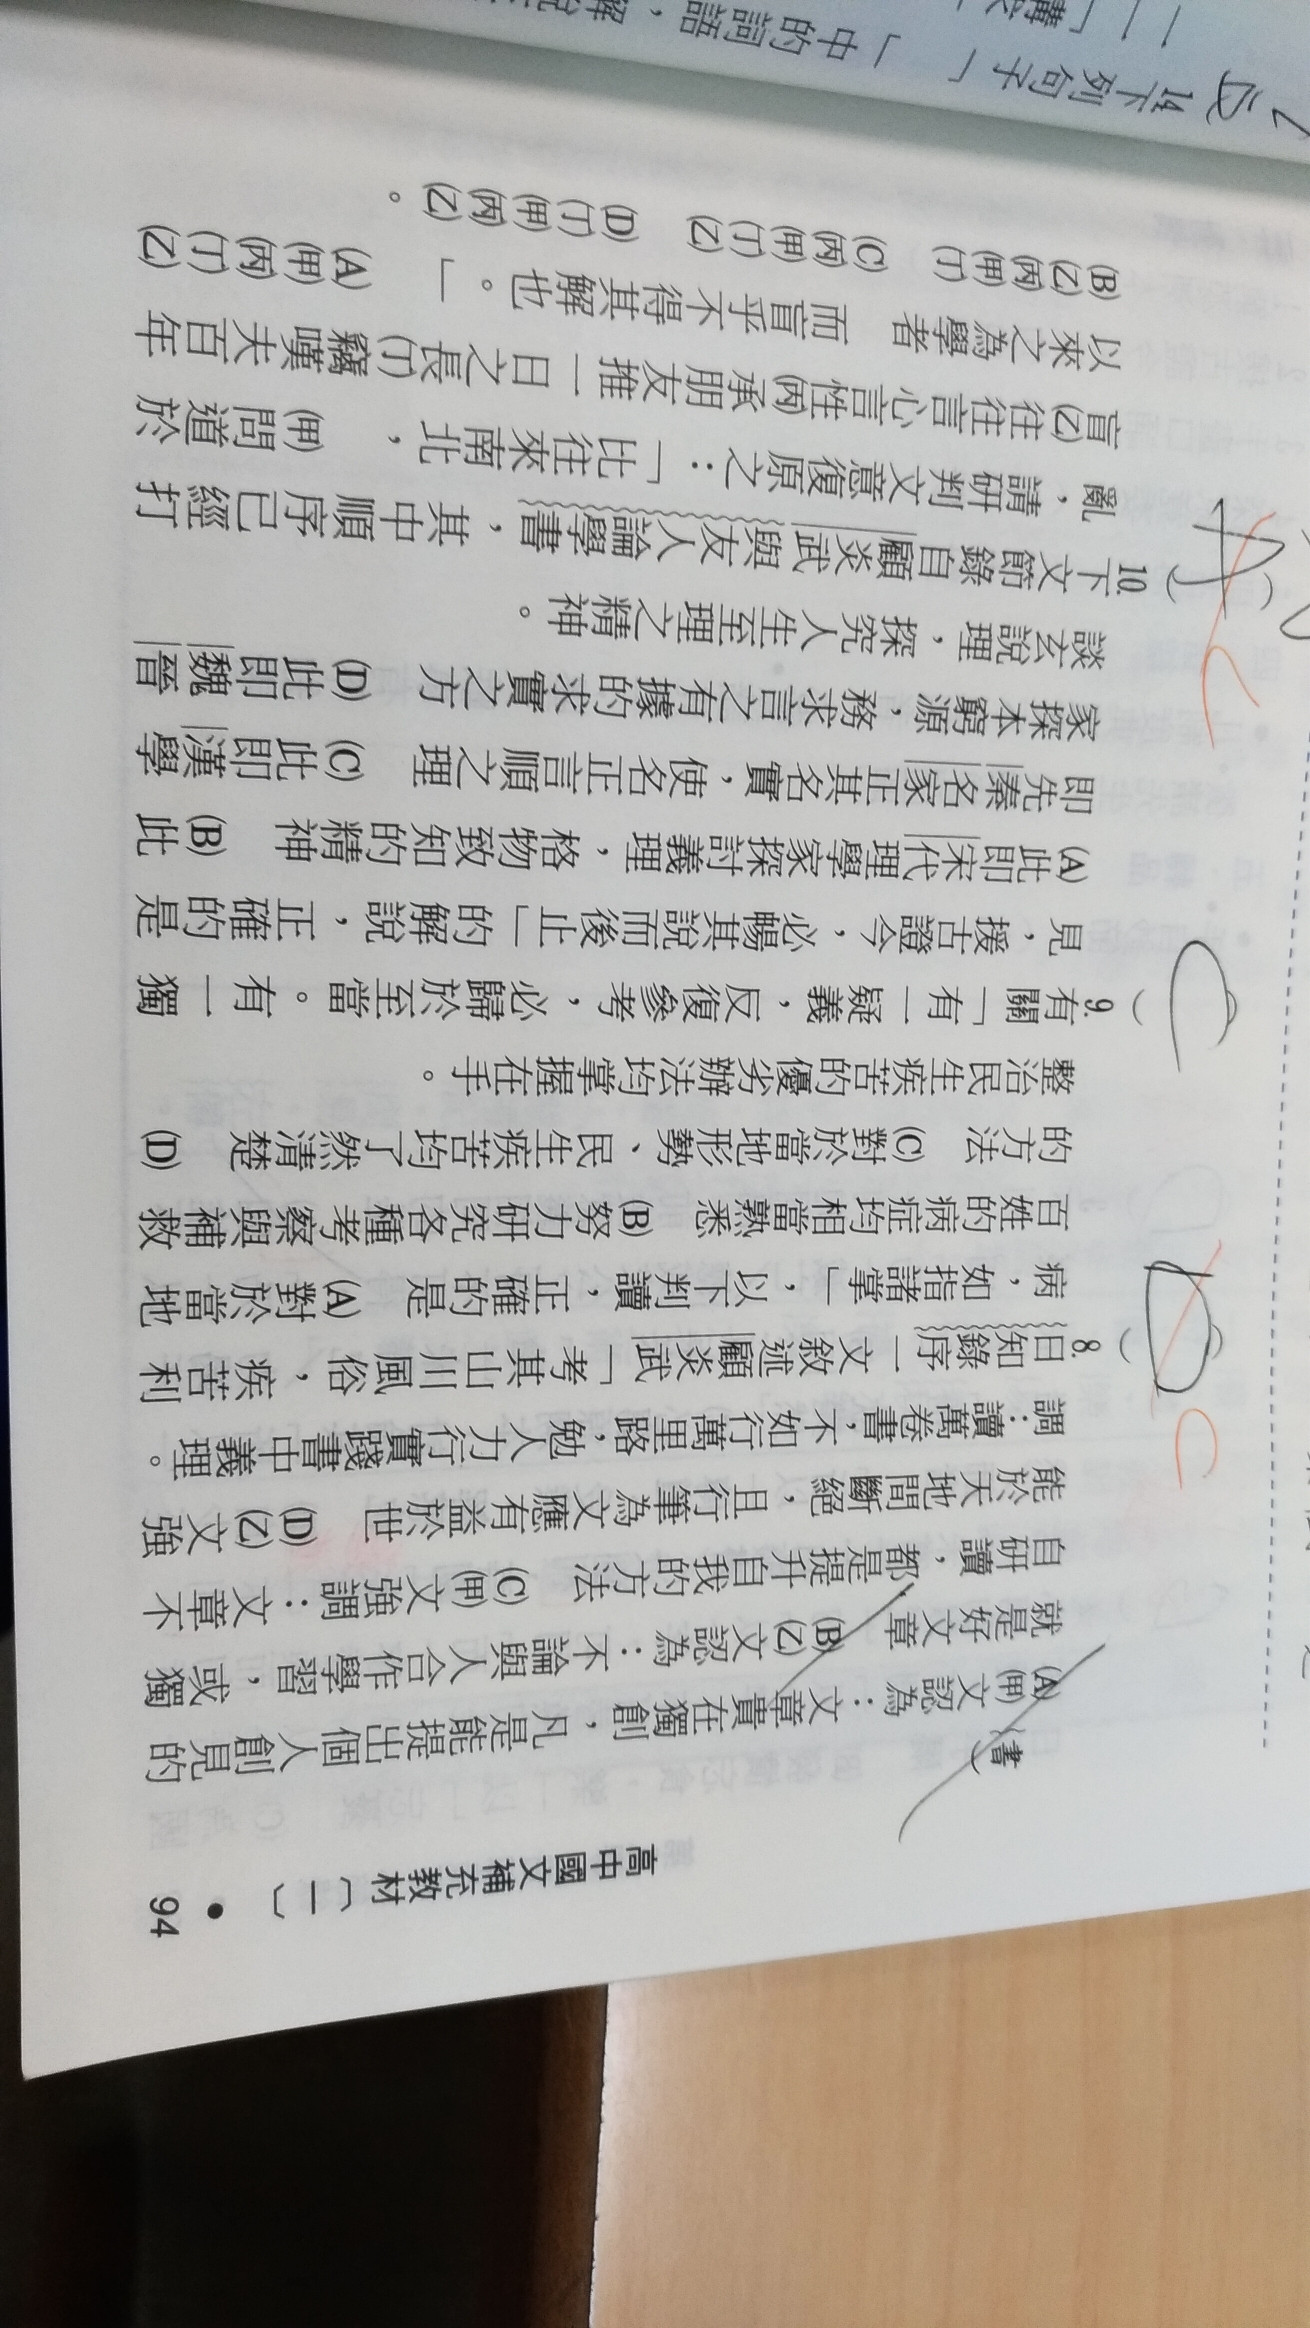 94 • 高中國文補充教材〔一〕
(書)
(A)(甲)文認為：文章貴在獨創，凡是能提出個人創見的
就是好文章 (B)(乙)文認為：不論與人合作學習，或獨
自研讀，都是提升自我的方法 (C)(甲)文強調：文章不
能於天地間斷絕，且行筆為文應有益於世 (D)(乙)文強
調：讀萬卷書，不如行萬里路，勉人力行實踐書中義理。
D C
( )8.日知錄序一文敘述顧炎武「考其山川風俗，疾苦利
病，如指諸掌」，以下判讀，正確的是 (A)對於當地
百姓的病症均相當熟悉 (B)努力研究各種考察與補救
的方法 (C)對於當地形勢、民生疾苦均了然清楚 (D)
整治民生疾苦的優劣辦法均掌握在手。
C
( )9.有關「有一疑義，反復參考，必歸於至當。有一獨
見，援古證今，必暢其說而後止」的解說，正確的是
(A)此即宋代理學家探討義理，格物致知的精神 (B)此
即先秦名家正其名實，使名正言順之理 (C)此即漢學
家探本窮源，務求言之有據的求實之方 (D)此即魏晉
談玄說理，探究人生至理之精神。
A C
( )10.下文節錄自顧炎武與友人論學書，其中順序已經打
亂，請研判文意復原之：「比往來南北， (甲)問道於
盲(乙)往往言心言性(丙)承朋友推一日之長(丁)竊嘆夫百年
以來之為學者 而盲乎不得其解也。」 (A)(甲)(丙)(丁)(乙)
(B)(乙)(丙)(甲)(丁) (C)(丙)(甲)(丁)(乙) (D)(丁)(甲)(丙)(乙)。
14.下列句子「 」中的詞語，解說